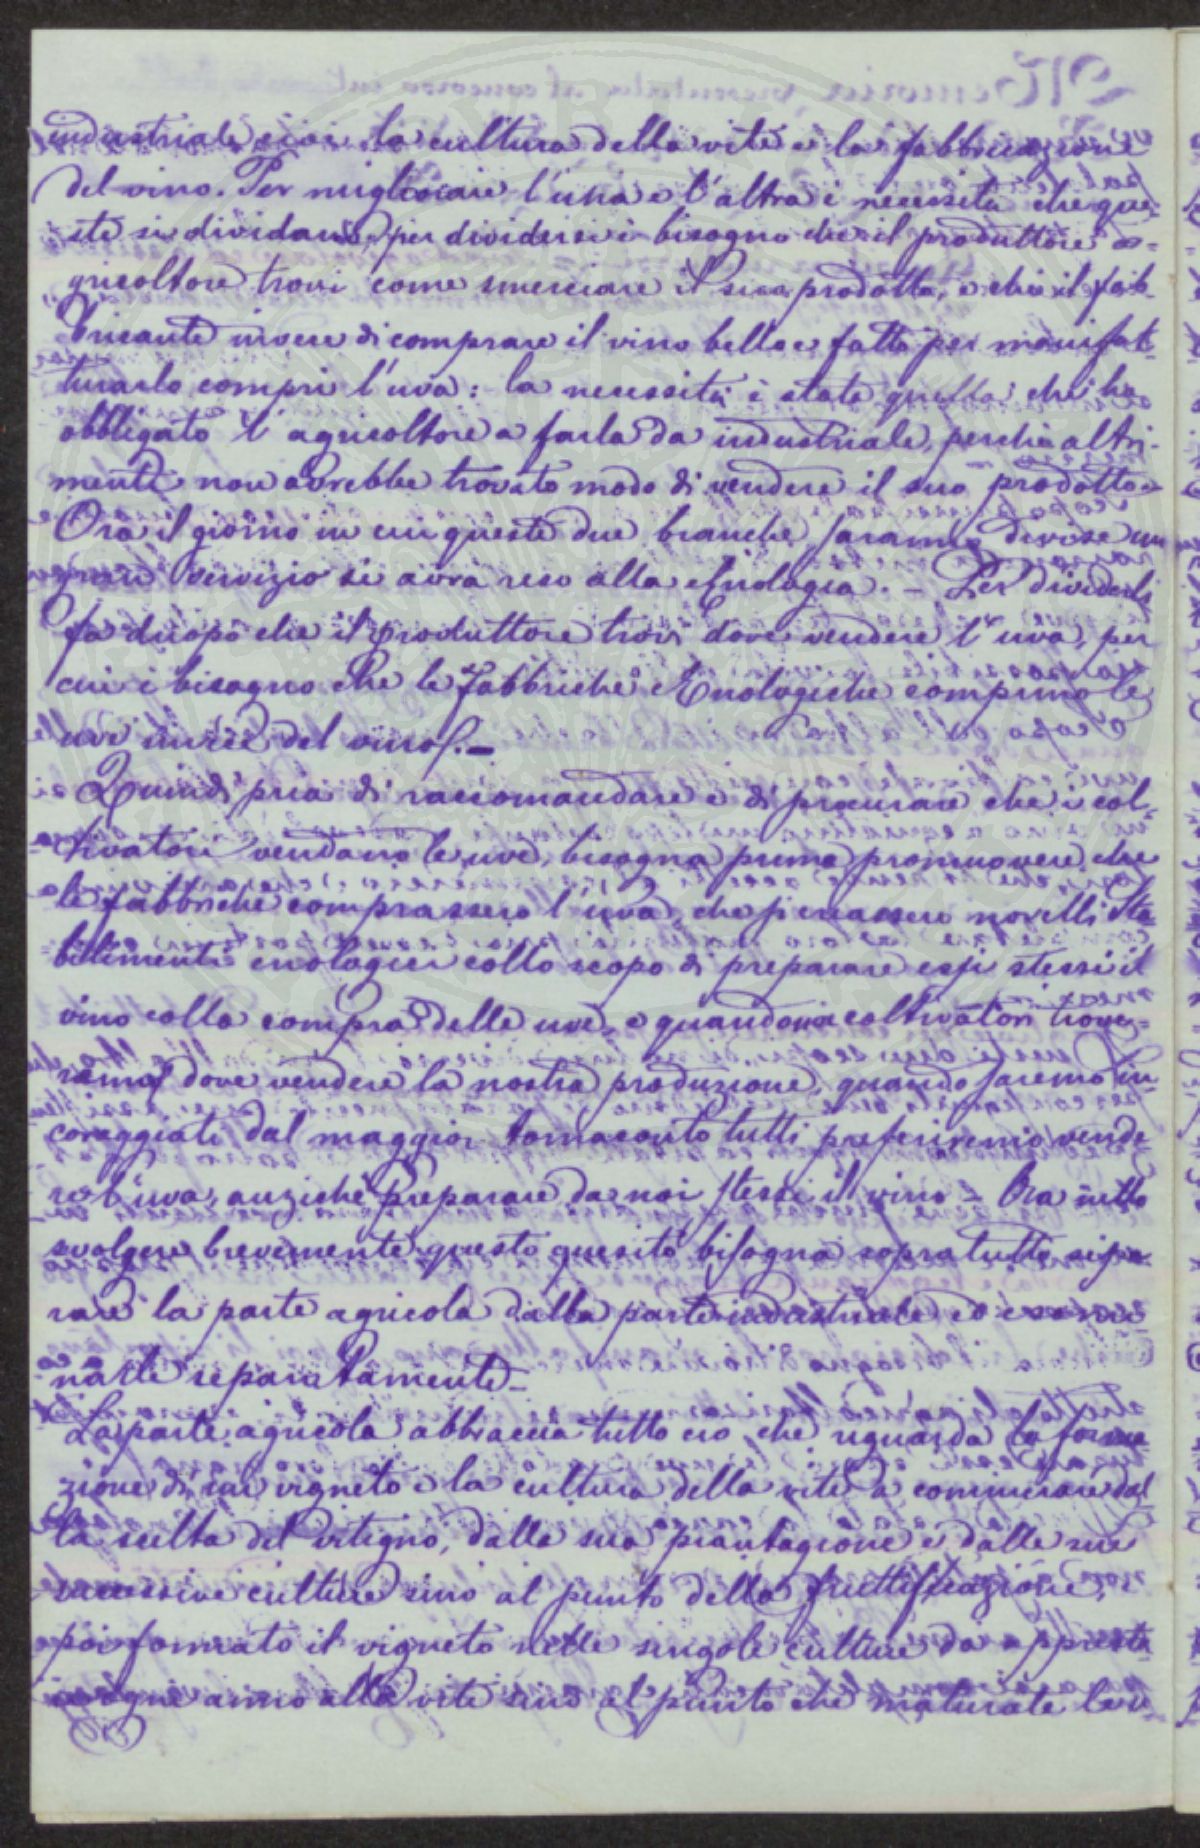 industriale, cioè la cultura della vite e la fabbricazione
del vino. Per migliorare l'una e l'altra è necessità che que-
ste si dividano, per dividersi è bisogno che il produttore a-
gricoltore trovi come smerciare il suo prodotto, e che il fab-
bricante invece di comprare il vino bello e fatto per manifat-
turarlo compri l'uva: la necessità è stata quella che ha
obbligato l'agricoltore a farla da industriale, perchè altri-
menti non avrebbe trovato modo di vendere il suo prodotto.
Ora il giorno in cui queste due branche saranno divise un
gran servizio si avrà reso alla Enologia. - Per dividerle
fa duopo che il produttore trovi dove vendere l'uva, per
cui è bisogno che le fabbriche Enologiche comprino le
uve invece del vino. -
Quindi pria di raccomandare e di procurare che i col-
tivatori vendano le uve, bisogna prima promuovere che
le fabbriche comprassero l'uva, che si creassero novelli Sta-
bilimenti enologici collo scopo di preparare essi stessi il
vino colla compra delle uve, e quando noi coltivatori trove-
remo dove vendere la nostra produzione, quando saremo in-
coraggiati dal maggior tornaconto tutti preferiremo vende-
re l'uva, anzichè preparare da noi stessi il vino - Ora nello
svolgere brevemente questo quesito bisogna sopratutto sepa-
rare la parte agricola dalla parte industriale ed esami-
narle separatamente -
La parte agricola abbraccia tutto ciò che riguarda la forma-
zione di un vigneto e la cultura della vite a cominciare dal-
la scelta del vitigno, dalla sua piantagione e dalle sue
successive culture sino al punto della fruttificazione,
poi formato il vigneto nelle singole culture da appresta
in ogni anno alla vite sino al punto che maturate le u-